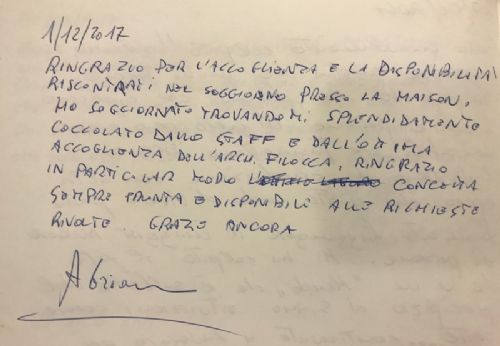 1/12/2017
RINGRAZIO PER L'ACCOGLIENZA E LA DISPONIBILITÀ
RISCONTRATI NEL SOGGIORNO PRESSO LA MAISON,
HO SOGGIORNATO TROVANDOMI SPLENDIDAMENTE
COCCOLATO DALLO STAFF E DALL'OTTIMA
ACCOGLIENZA DELL'ARCH. FILOCCA, RINGRAZIO
IN PARTICOLAR MODO CONCETTA
SEMPRE PRONTA E DISPONIBILE ALLE RICHIESTE
RIVOLTE. GRAZIE ANCORA